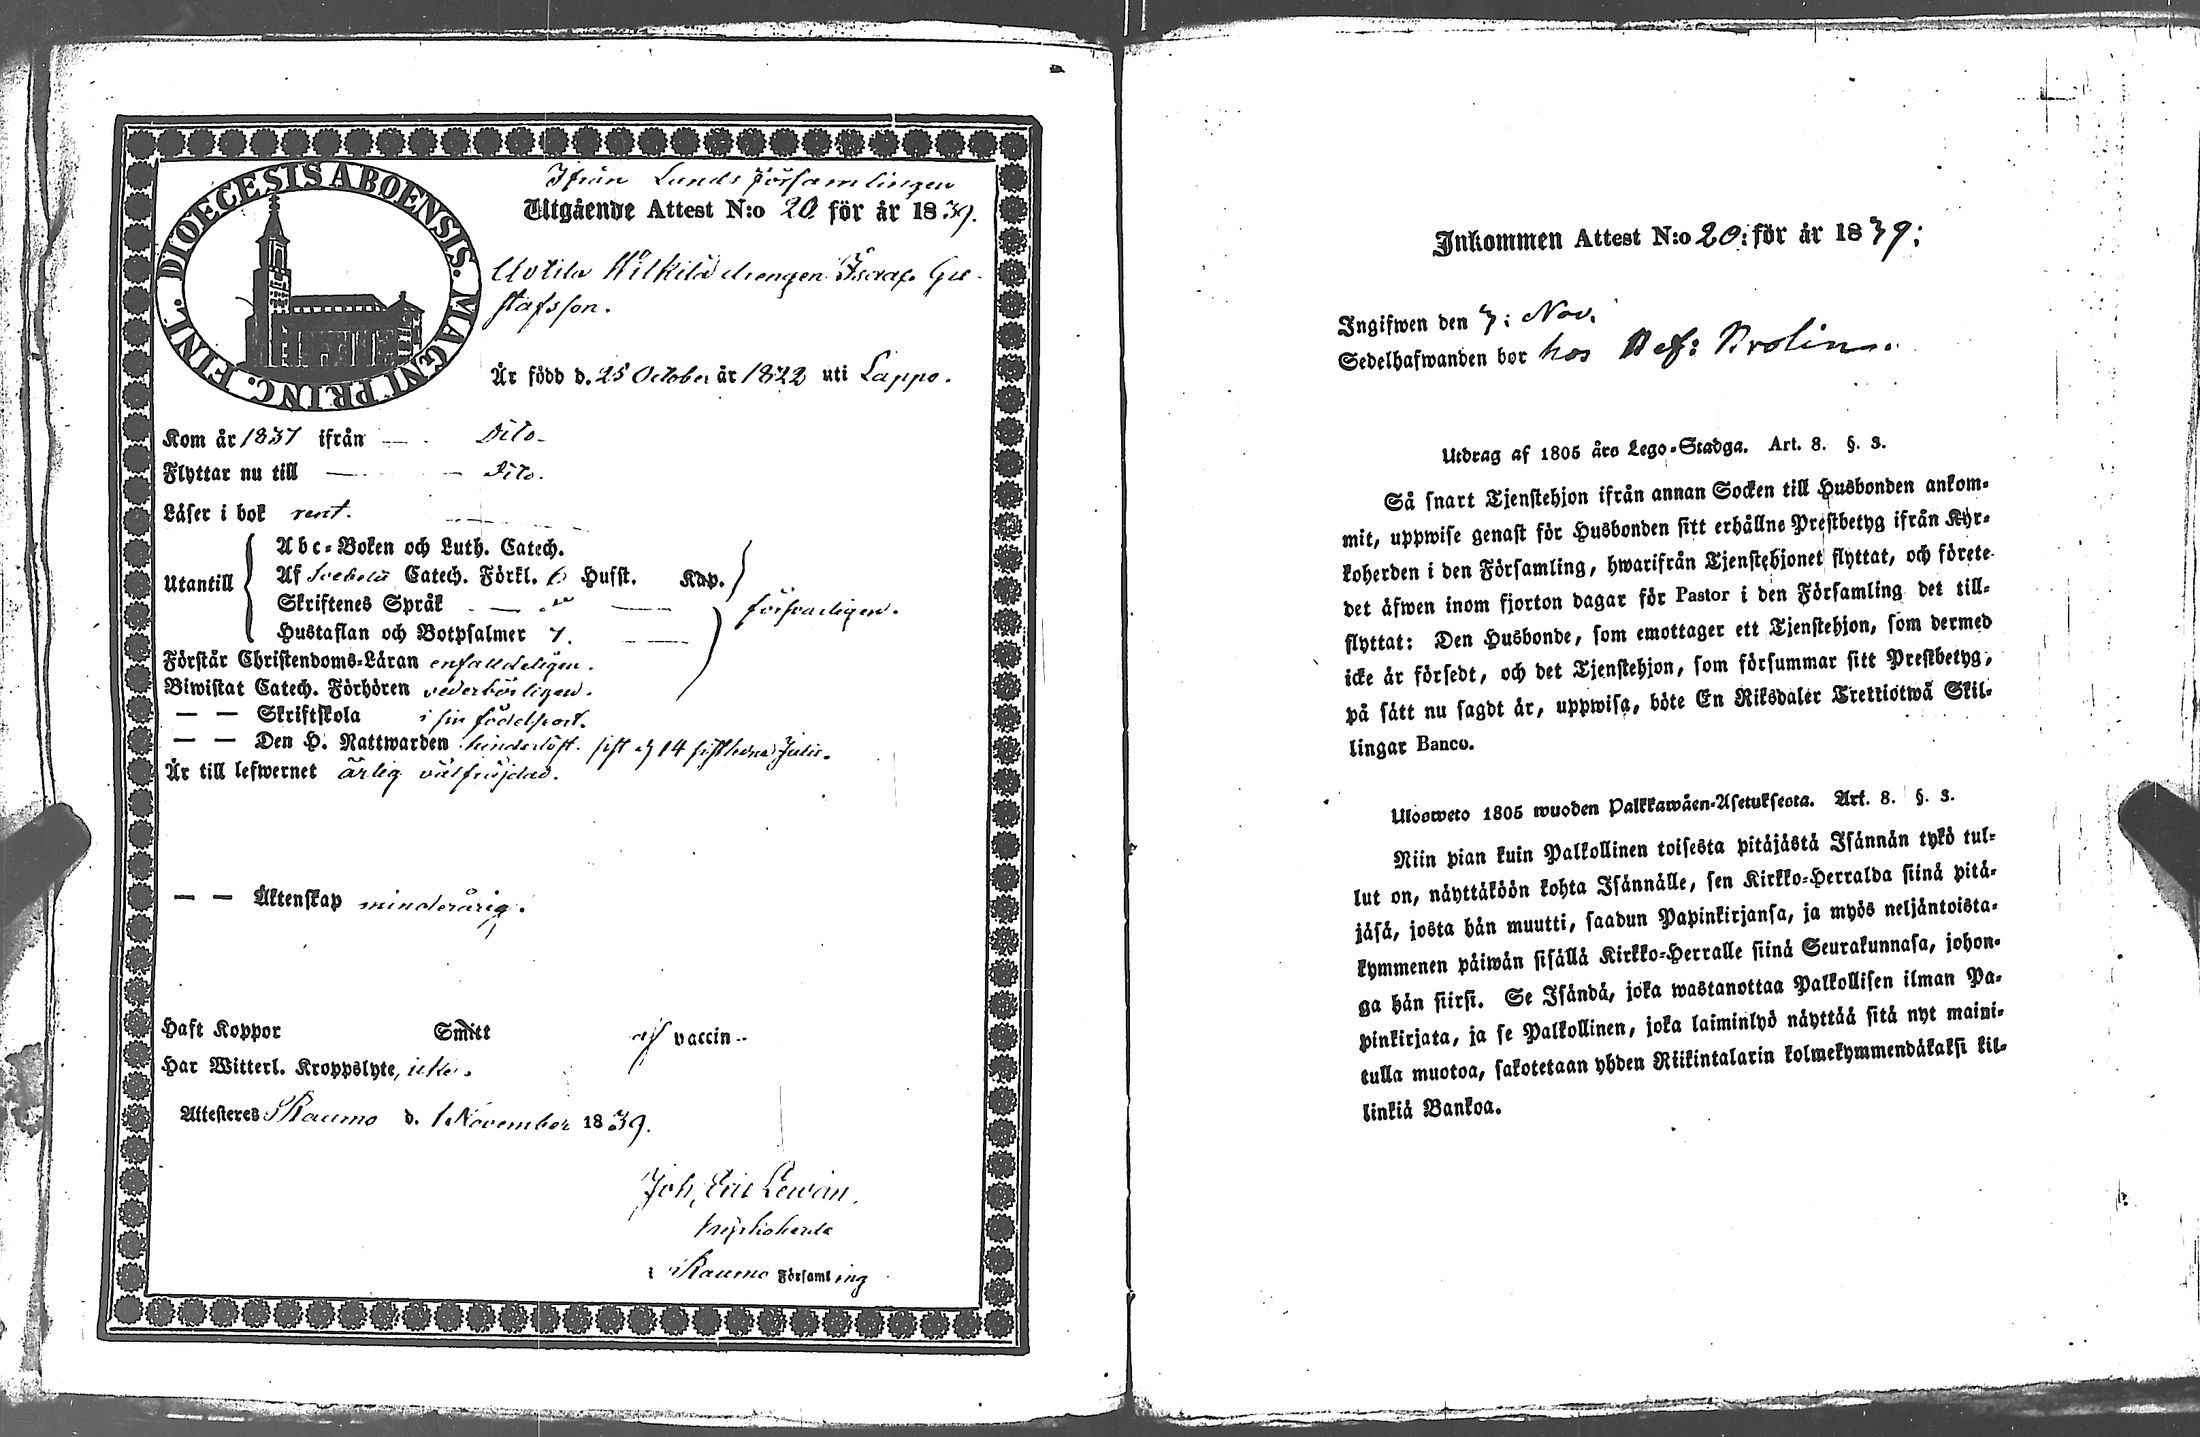 DIOECESIS ABOENSIS. MAGNI PRINC. FINL.
Ifrån Lands Församlingen
Utgående Attest N:o 20 för år 1839.
Drengen Gu-
stafsson.
Är född d. 25 October år 1822 uti Lappo.
Kom år 1837 ifrån — . Dito.
Flyttar nu till — — Dito.
Läser i bok rent.
Utantill
Abc-Boken och Luth. Catech.
Af Svebelii Catech. Förkl. 6 Hufst. Kap.
Skriftenes Språk — —
Hustaflan och Botpsalmer 7.
försvarligen.
Förstår Christendoms-Läran enfalldeligen.
Biwistat Catech. Förhören vederbörligen.
— — Skriftskola i sin födelseort.
— — Den H. Nattwarden sist d 14 sistledne Julii.
Är till lefwernet ärlig välfräjdad.
— — Äktenskap minderårig.
Haft Koppor Smitt af vaccin.
Har Witterl. Kroppslyte, icke.
Attesteres Raumo d. 1 November 1839.
Joh. Eric Levan.
kyrkoherde
i Raumo Församling
Inkommen Attest N:o 20: för år 1839:
Ingifwen den 7: Nov.
Sedelhafwanden bor hos Brolin.
Utdrag af 1805 års Lego-Stadga. Art. 8. §. 3.
Så snart Tjenstehjon ifrån annan Socken till Husbonden ankom-
mit, uppwise genast för Husbonden sitt erhållne Prestbetyg ifrån Kyr-
koherden i den Församling, hwarifrån Tjenstehjonet flyttat, och förete
det äfwen inom fjorton dagar för Pastor i den Församling det till-
flyttat: Den Husbonde, som emottager ett Tjenstehjon, som dermed
icke är försedt, och det Tjenstehjon, som försummar sitt Prestbetyg,
på sätt nu sagdt är, uppwisa, böte En Riksdaler Trettiotwå Skil-
lingar Banco.
Ulosweto 1805 wuoden Palkkawäen-Asetuksesta. Art. 8. §. 3.
Niin pian kuin Palkollinen toisesta pitäjästä Isännän tykö tul-
lut on, näyttäköön kohta Isännälle, sen Kirkko-Herralda siinä pitä-
jäsä, josta hän muutti, saadun Papinkirjansa, ja myös neljäntoista-
kymmenen päiwän sisällä Kirkko-Herralle siinä Seurakunnasa, johon-
ga hän siirsi. Se Isändä, joka wastanottaa Palkollisen ilman Pa-
pinkirjata, ja se Palkollinen, joka laiminlyö näyttää sitä nyt maini-
tulla muotoa, sakotetaan yhden Riikintalarin kolmekymmendäkaksi kil-
linkiä Bankoa.